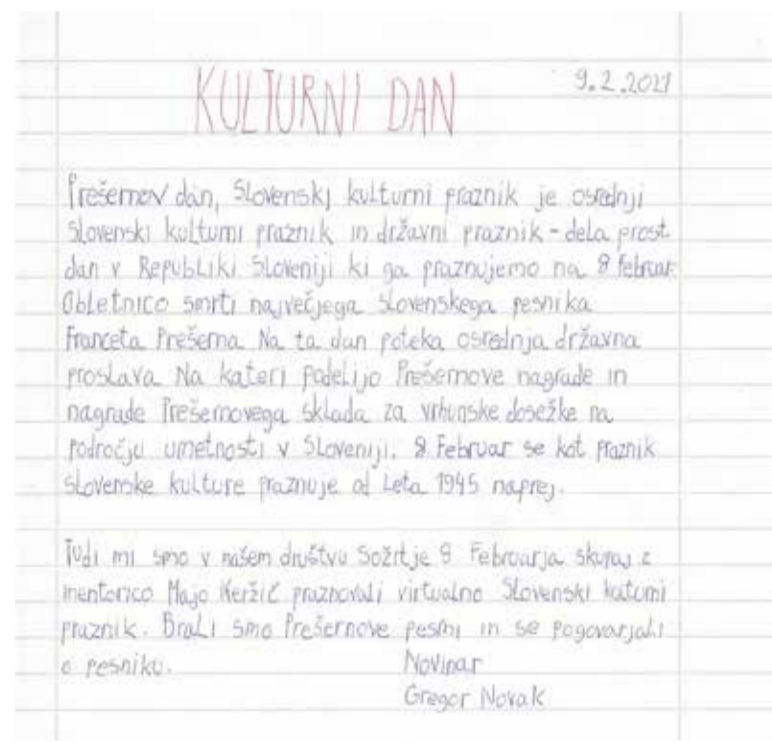 KULTURNI DAN
9.2.2021
Prešernov dan, Slovenski kulturni praznik je osrednji
Slovenski kulturni praznik in državni praznik - dela prost
dan v Republiki Sloveniji ki ga praznujemo na 8 februar.
Obletnico smrti največjega slovenskega pesnika
Franceta Prešerna Na ta dan poteka osrednja državna
proslava Na kateri podelijo Prešernove nagrade in
nagrade Prešernovega sklada za vrhunske dosežke na
področju umetnosti v Sloveniji. 8 Februar se kot praznik
slovenske kulture praznuje od leta 1945 naprej.
Tudi mi smo v našem društvu Sožitje 8 Februarja skupaj z
mentorico Majo Keržič praznovali virtualno Slovenski katurni
praznik. Brali smo Prešernove pesmi in se pogovarjali
o pesniku.
Novinar
Gregor Novak